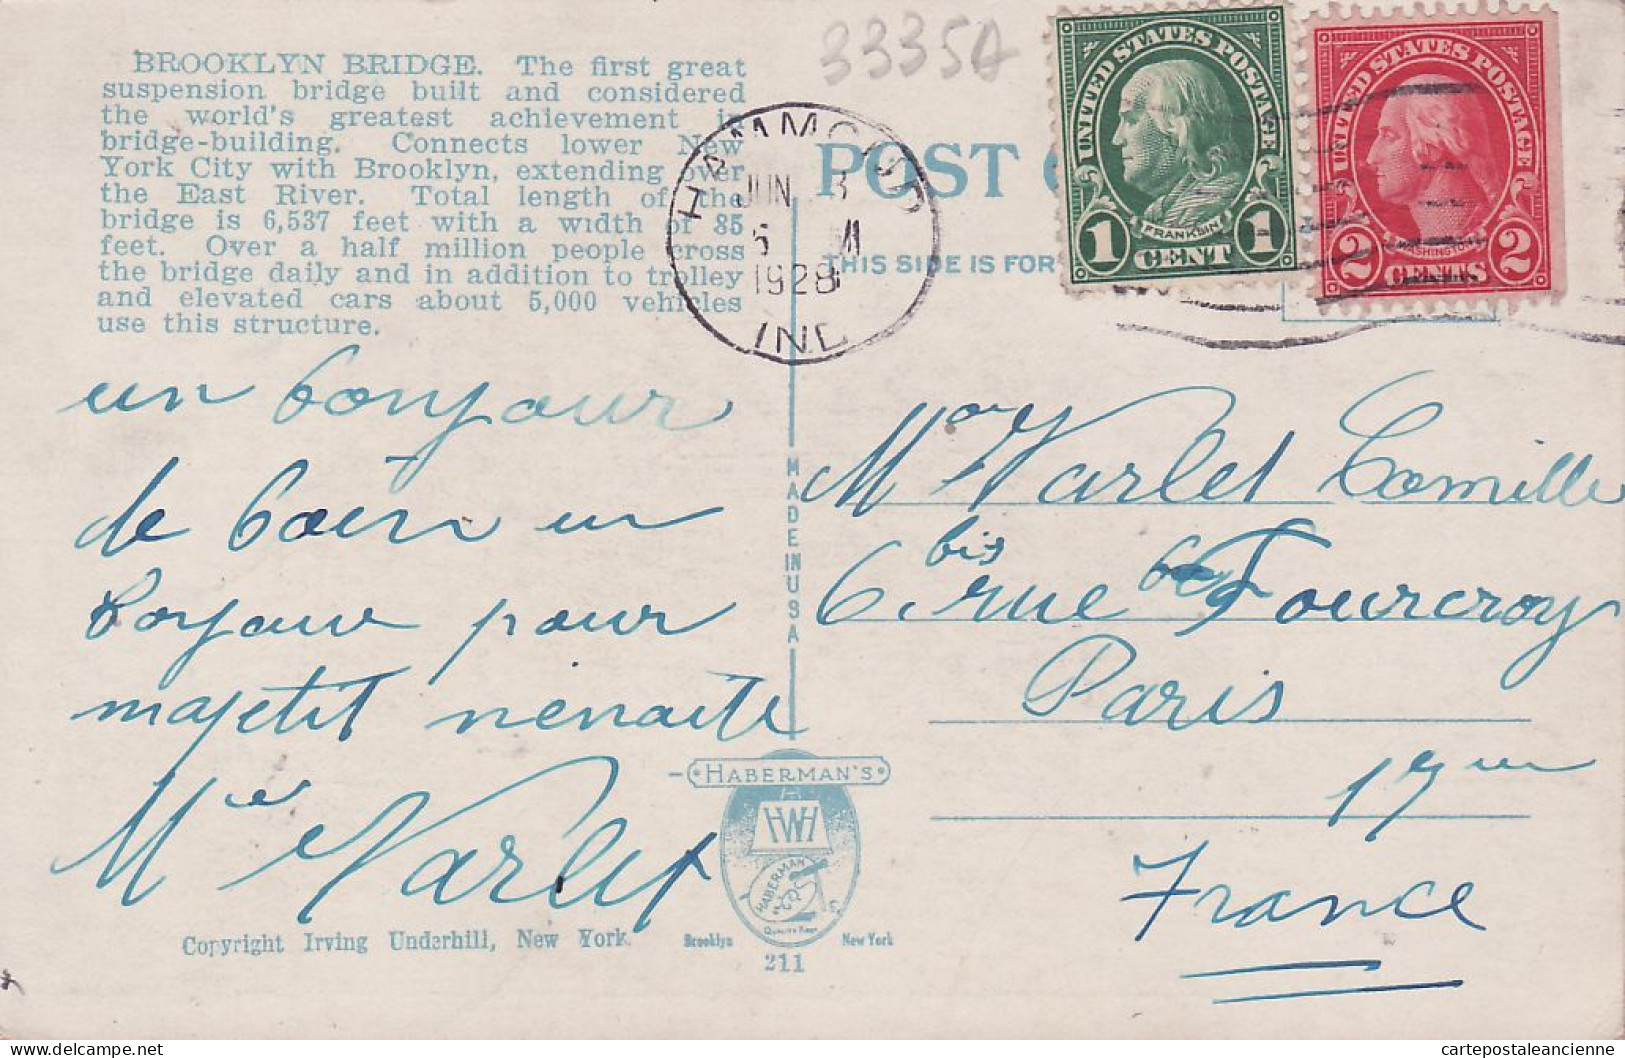 BROOKLYN BRIDGE. The first great
suspension bridge built and considered
the world's greatest achievement in
bridge-building. Connects lower New
York City with Brooklyn, extending over
the East River. Total length of the
bridge is 6,537 feet with a width of 85
feet. Over a half million people cross
the bridge daily and in addition to trolley
and elevated cars about 5,000 vehicles
use this structure.
33350
HAMMOND
JUN 3
1928
IND
POST
THIS SIDE IS FOR
UNITED STATES POSTAGE
FRANKLIN
1 CENT 1
UNITED STATES POSTAGE
WASHINGTON
2 CENTS 2
un bonjour
de
pour
MADE IN USA
Mor Varlet Camille
6 bis rue Fourcroy
Paris
17
France
Varlet
HABERMAN'S
HWH
HABERMAN
Copyright Irving Underhill, New York.
Brooklyn New York
211
delcampe.net
cartepostaleancienne